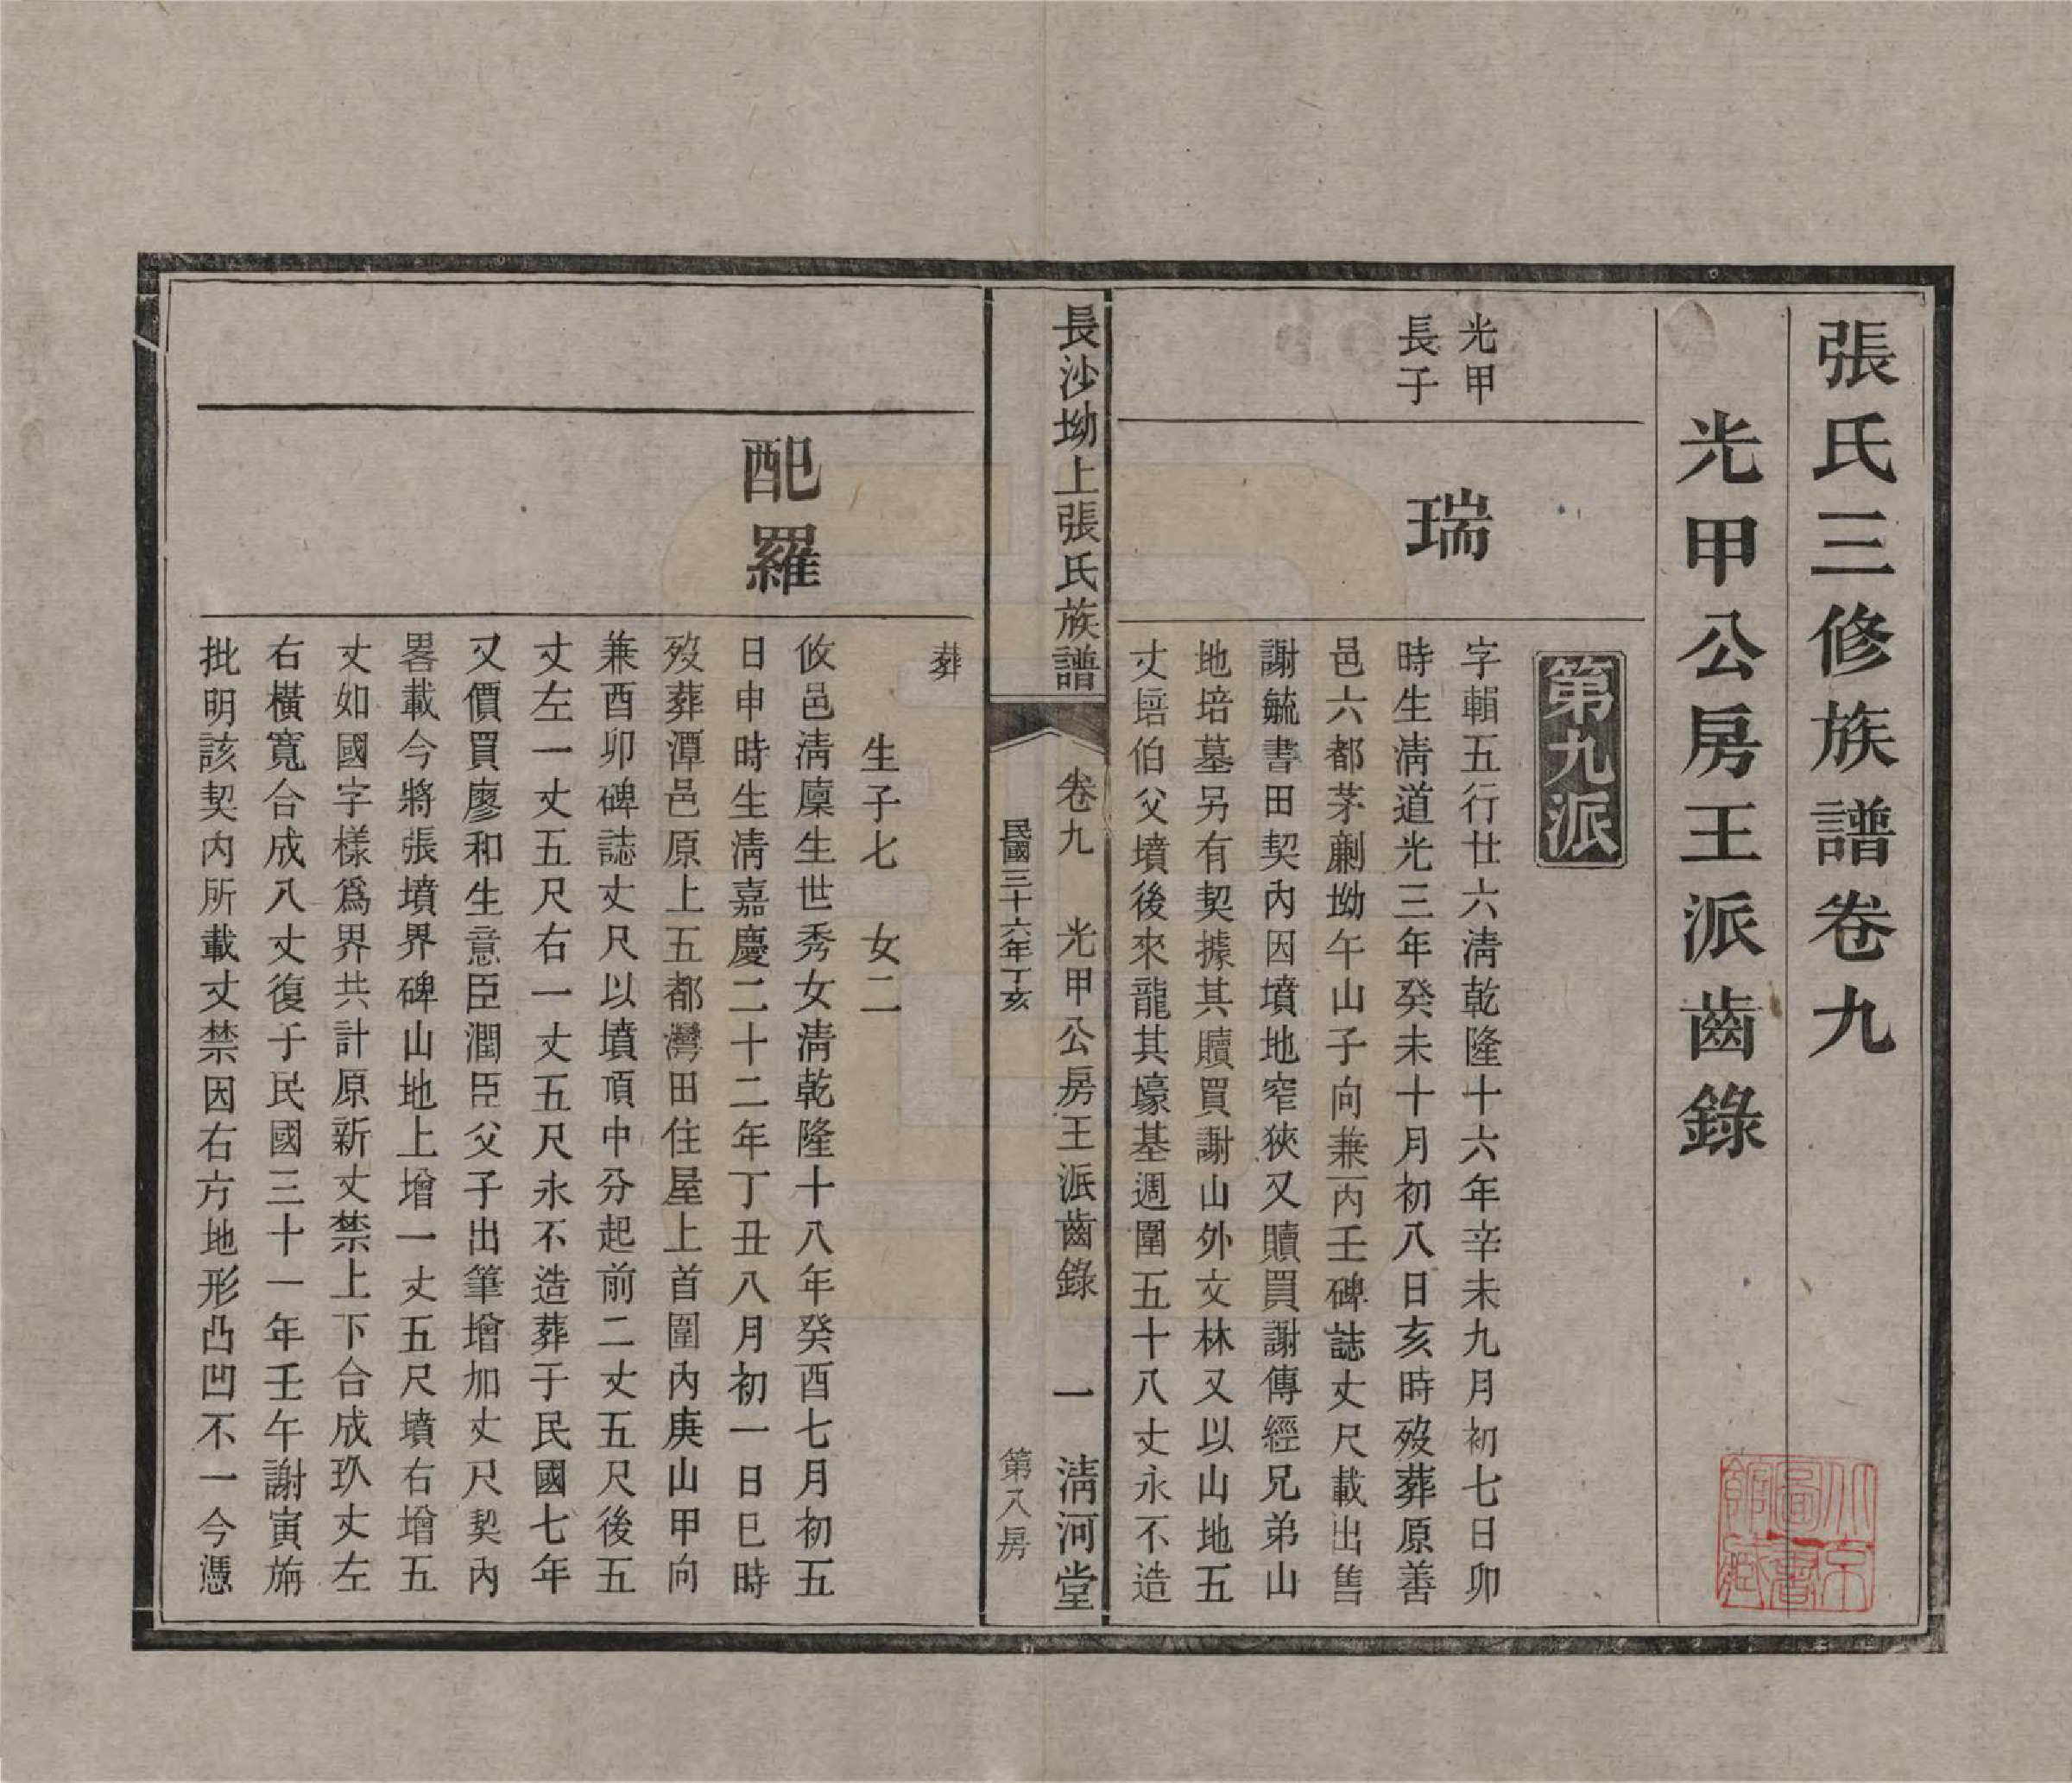 張氏三修族譜卷九
光甲公房王派齒錄
第九派
光甲
長子
瑞
字輯五行廿六淸乾隆十六年辛未九月初七日卯
時生淸道光三年癸未十月初八日亥時歿葬原善
邑六都茅蒯坳午山子向兼丙壬碑誌丈尺載出售
謝毓書田契內因墳地窄狹又贖買謝傳經兄弟山
地培墓另有契據其贖買謝山外文林又以山地五
丈培伯父墳後來龍其壕基週圍五十八丈永不造
長沙坳上張氏族譜
卷九 光甲公房王派齒錄 一 淸河堂
民國三十六年丁亥 第八房
葬
生子七 女二
配羅
攸邑淸廩生世秀女淸乾隆十八年癸酉七月初五
日申時生淸嘉慶二十二年丁丑八月初一日巳時
歿葬潭邑原上五都灣田住屋上首圍內庚山甲向
兼酉卯碑誌丈尺以墳頂中分起前二丈五尺後五
丈左一丈五尺右一丈五尺永不造葬于民國七年
又價買廖和生意臣潤臣父子出筆增加丈尺契內
畧載今將張墳界碑山地上增一丈五尺墳右增五
丈如國字樣爲界共計原新丈禁上下合成玖丈左
右橫寬合成八丈復于民國三十一年壬午謝寅旃
批明該契內所載丈禁因右方地形凸凹不一今憑
北京
圖書
館藏